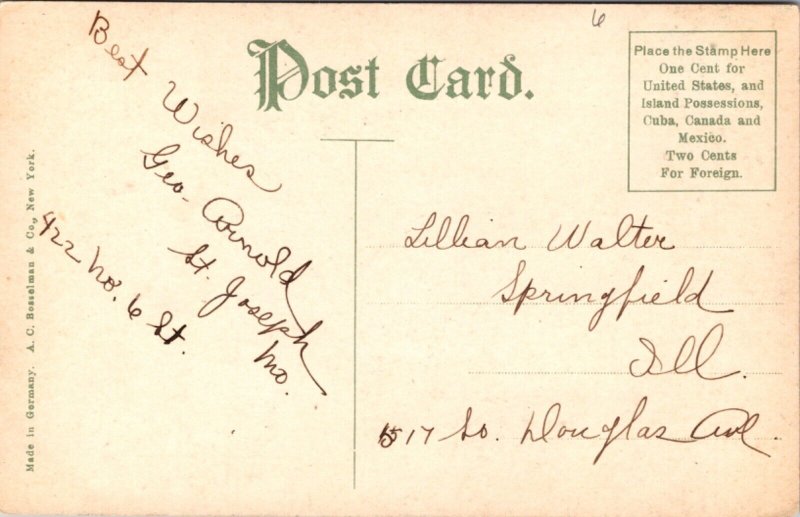 6
Post Card.
Place the Stamp Here
One Cent for
United States, and
Island Possessions,
Cuba, Canada and
Mexico.
Two Cents
For Foreign.
Best Wishes
Geo. Arnold
St. Joseph
Mo.
422 No. 6 St.
Lillian Walter
Springfield
Ill.
1517 So. Douglas Ave.
Made in Germany. A. C. Bosselman & Co., New York.